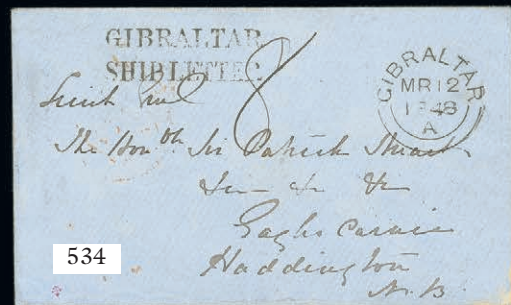 GIBRALTAR
SHIP LETTER
8
GIBRALTAR
MR 12
1848
A
The Hon ble Sir Patrick Stuart
&c &c &c
Eagles carnie
Haddington
N.B.
534